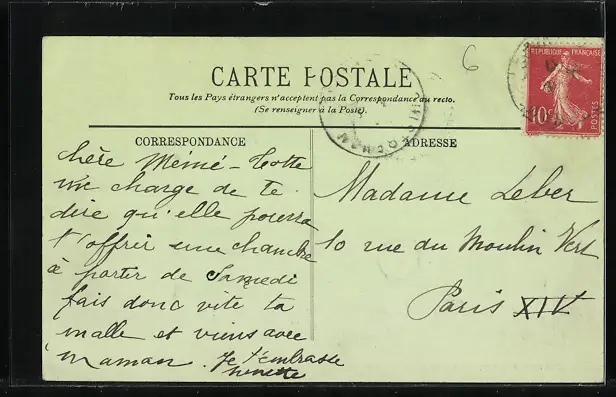 CARTE POSTALE
Tous les Pays étrangers n'acceptent pas la Correspondance au recto.
(Se renseigner à la Poste).
6
REPUBLIQUE FRANÇAISE
10c
POSTES
CORRESPONDANCE
ADRESSE
Chère Mémé - Totte
me charge de te
dire qu'elle pourra
t'offrir une chambre
à partir de Samedi
fais donc vite ta
malle et viens avec
maman. Je t'embrasse
Madame Leber
10 rue du Moulin Vert
Paris XIV